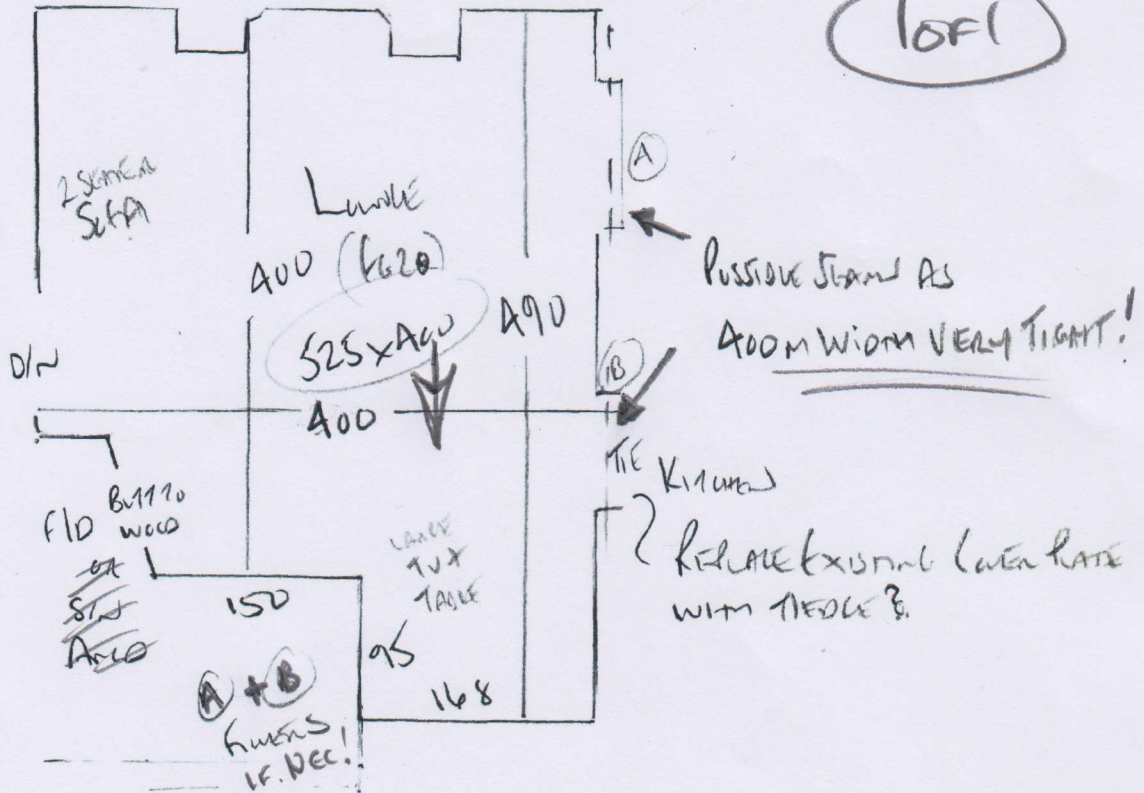 1 OF 1
2 SEATER
SOFA
LOUNGE
400
525 x 400
490
A
POSSIBLE SEAM AS
400M WIDTH VERY TIGHT!
B
400
TIE
KITCHEN
REPLACE EXISTING COVER PLATE
WITH TIEDGE?
F/D
BUTT TO
WOOD
LARGE
TABLE
150
95
168
A + B
FILLERS
IF. NEC!